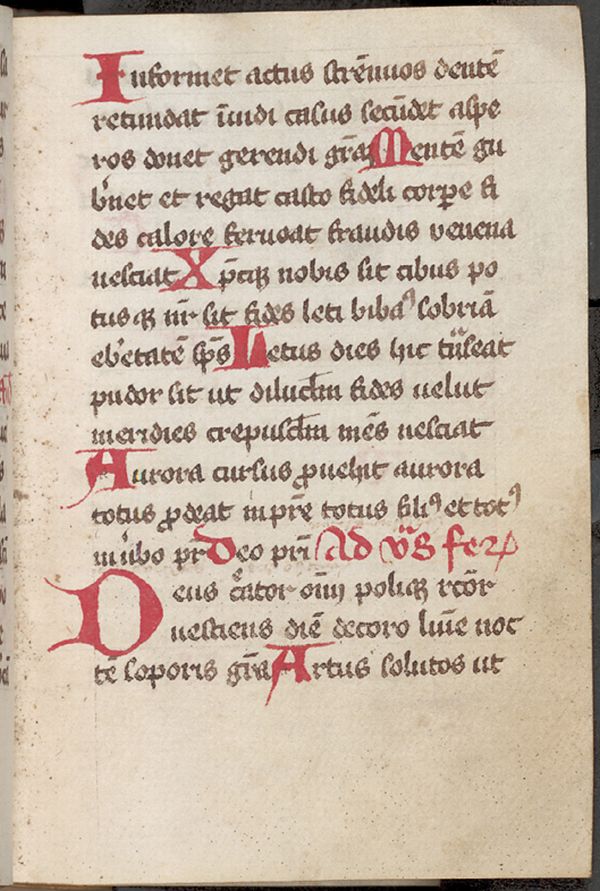 Informet actus strēnuos dentē
retundat īuidi casus secūdet aspe
ros donet gerendi gr̄aȝ Mentē gu
b̓net et regat casto fideli corpꝑe fi
des calore feruoat fraudis venena
nesciat Xp̄cꝗ nobis sit cibus po
tusꝗ nr̄ sit fides leti bibaꝰ sobriā
eb̓etatē sp̄s Letus dies hic trͣseat
pudor sit ut diluclm̄ fides uelut
meridies crepusclm̄ mēs nesciat
Aurora cursus ꝓuehit aurora
totus ꝓdeat in pr̄e totus filiꝰ et totꝰ
in ūbo pr̄ Deo pr̄i Ad vͣs fer̄
Deus c͛ator om̄ poliꝗ rc̄or
uestiens diē decoro lum̄e noc
tē soporis gr̄a Artus solutos ut